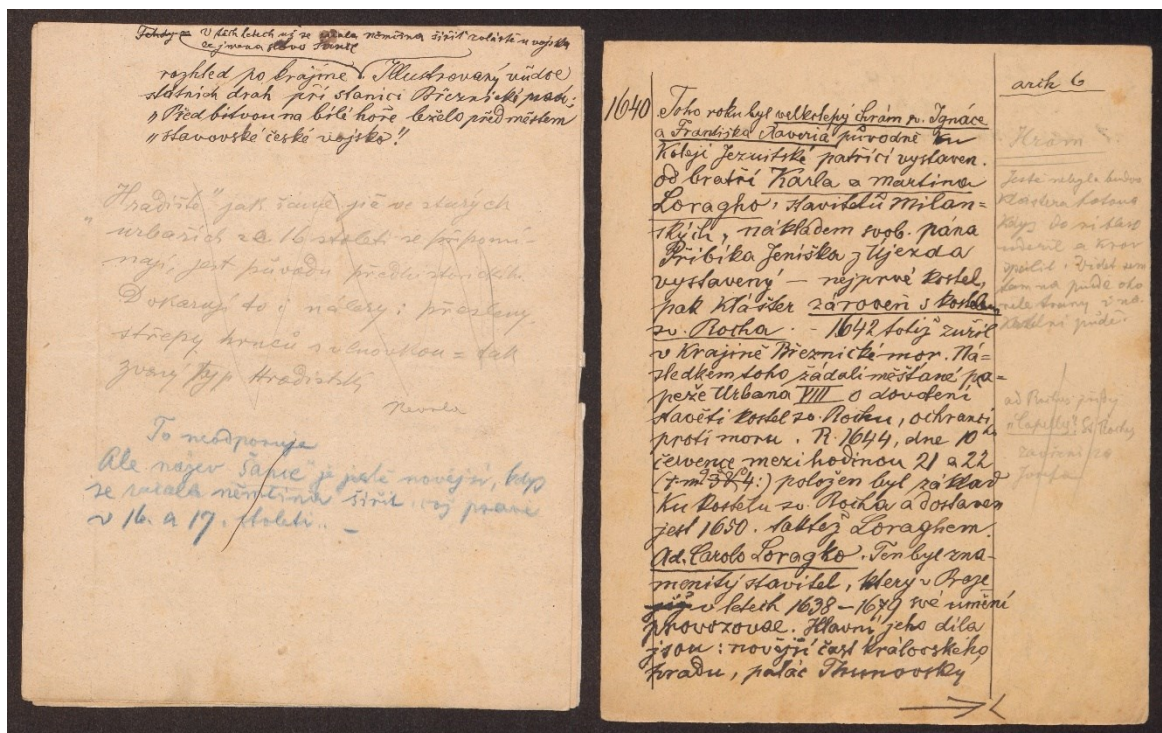 V těch letech už se začala němčina šířit zvláště u vojska
zejmena slovo šance
rozhled po krajině. Illustrovaný vůdce
státních drah při stanici Březnické praví:
„Před bitvou na bílé hoře leželo před městem
„stavovské české vojsko".
„Hradiště" jak šancě již ve starých
urbářích ze 16. století se připomí-
nají, jest původu předhistorického.
Dokazují to i nálezy: přesleny
střepy hrnců s vlnovkou = tak
zvaný typ Hradištský
To neodporuje
Ale název „šance" je jistě novější, kdy
se začala němčina šířit
v 16. a 17. století. –
arch 6
1640
Toho roku byl velkolepý chrám sv. Ignáce
a Františka Xaveria původně ku
Koleji Jezuitské patřící vystaven
od bratří Karla a martina
Loragho, stavitelů Milan=
ských, nákladem svob. pána
Přibíka Jeníška z Újezda
vystavený – nejprvé kostel,
pak klášter zároveň s kostelem
sv. Rocha. – 1642 totiž zuřil
v Krajině Březnické mor. Ná=
sledkem toho žádali měšťané pa=
peže Urbana VIII o dovolení
stavěti kostel sv. Rochu, ochranci
proti moru. R. 1644, dne 10
července mezi hodinou 21 a 22
položen byl základ
Ku kostelu sv. Rocha a dostaven
jest 1650. taktéž Loraghem.
Ad. Carolo Loragko. Ten byl zna-
menitý stavitel, který v Praze
v letech 1638 – 1679 své umění
provozoval. Hlavní jeho díla
jsou: novější část královského
hradu, palác Thunovský
Hrám
Ještě nebyla budova
kláštera hotova
když do ní blesk
udeřil a krov
spálil. Videt sem
tam na půdě oho
relé trámy
půdě.
ad Rochus
„Capely" St. Rochy